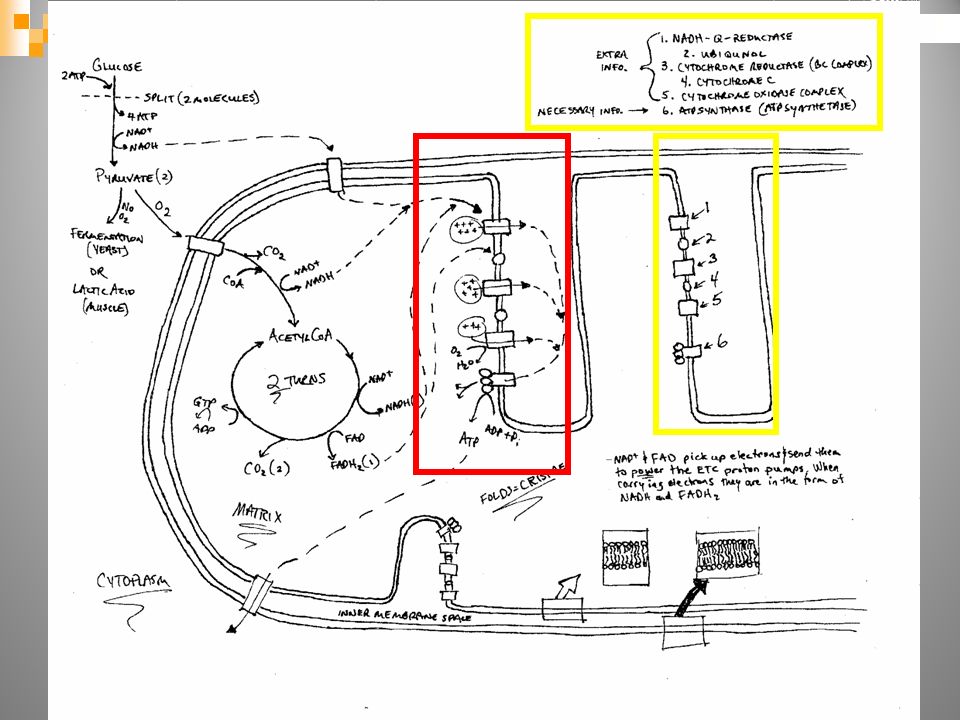 1. NADH-Q-REDUCTASE
EXTRA INFO.
2. UBIQUNOL
3. CYTOCHROME REDUCTASE (BC COMPLEX)
4. CYTOCHROME C
5. CYTOCHROME OXIDASE COMPLEX
NECESSARY INFO. → 6. ATP SYNTHASE (ATP SYNTHETASE)
GLUCOSE
2ATP
SPLIT (2 MOLECULES)
4 ATP
NAD+
NADH
PYRUVATE (2)
NO O2
O2
FERMENTATION
(YEAST)
OR
LACTIC ACID
(MUSCLE)
CO2
COA
NAD+
NADH
ACETYL COA
2 TURNS
GTP
ADP
NAD+
FAD
FADH2 (1)
CO2 (2)
+++
+++
+++
O2
H2O
ATP
ADP + Pi
1
2
3
4
5
6
FOLDS = CRISTAE
MATRIX
CYTOPLASM
INNER MEMBRANE SPACE
- NAD+ & FAD pick up electrons & send them
to power the ETC proton pumps. When
carrying electrons they are in the form of
NADH and FADH2